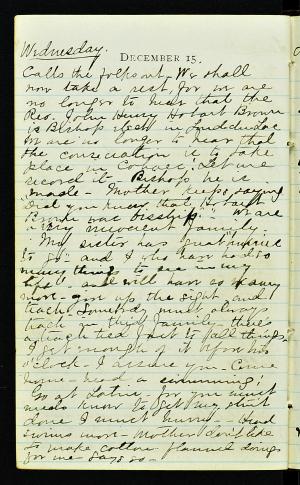 Wednesday.
DECEMBER 15.
Calls the folks out. We shall
now take a rest, for we are
no longer to hear that the
Rev. John Henry Hobart Brown
is Bishop elect
We are no longer to hear that
the consecration is to take
place in Let me
record it. Bishop he is
made - Mother keeps saying
"Did you know that Hobart
Brown was bishop" We are
a very innocent family.
"My sister has
to go" and I who have had so
many things to see in my
life - and will have so many
more - give up the sight and
teach. Somebody must always
teach in this family - there's
a tied fast to all things.
I get enough of it before two
o'clock - I assure you. Come
home - head a swimming!
Go at Latin, for you must
needs know to get my stint
done I must hurry - Head
swims more - Mother don't like
to make cotton flannel
for me - Says so -